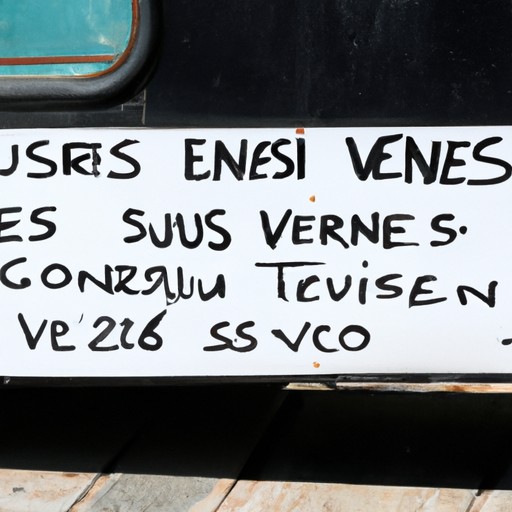 USRS ENESI VENES
ES SUUS VERNES.
CONZRUU TCVISEN
VE'226 SS VCO